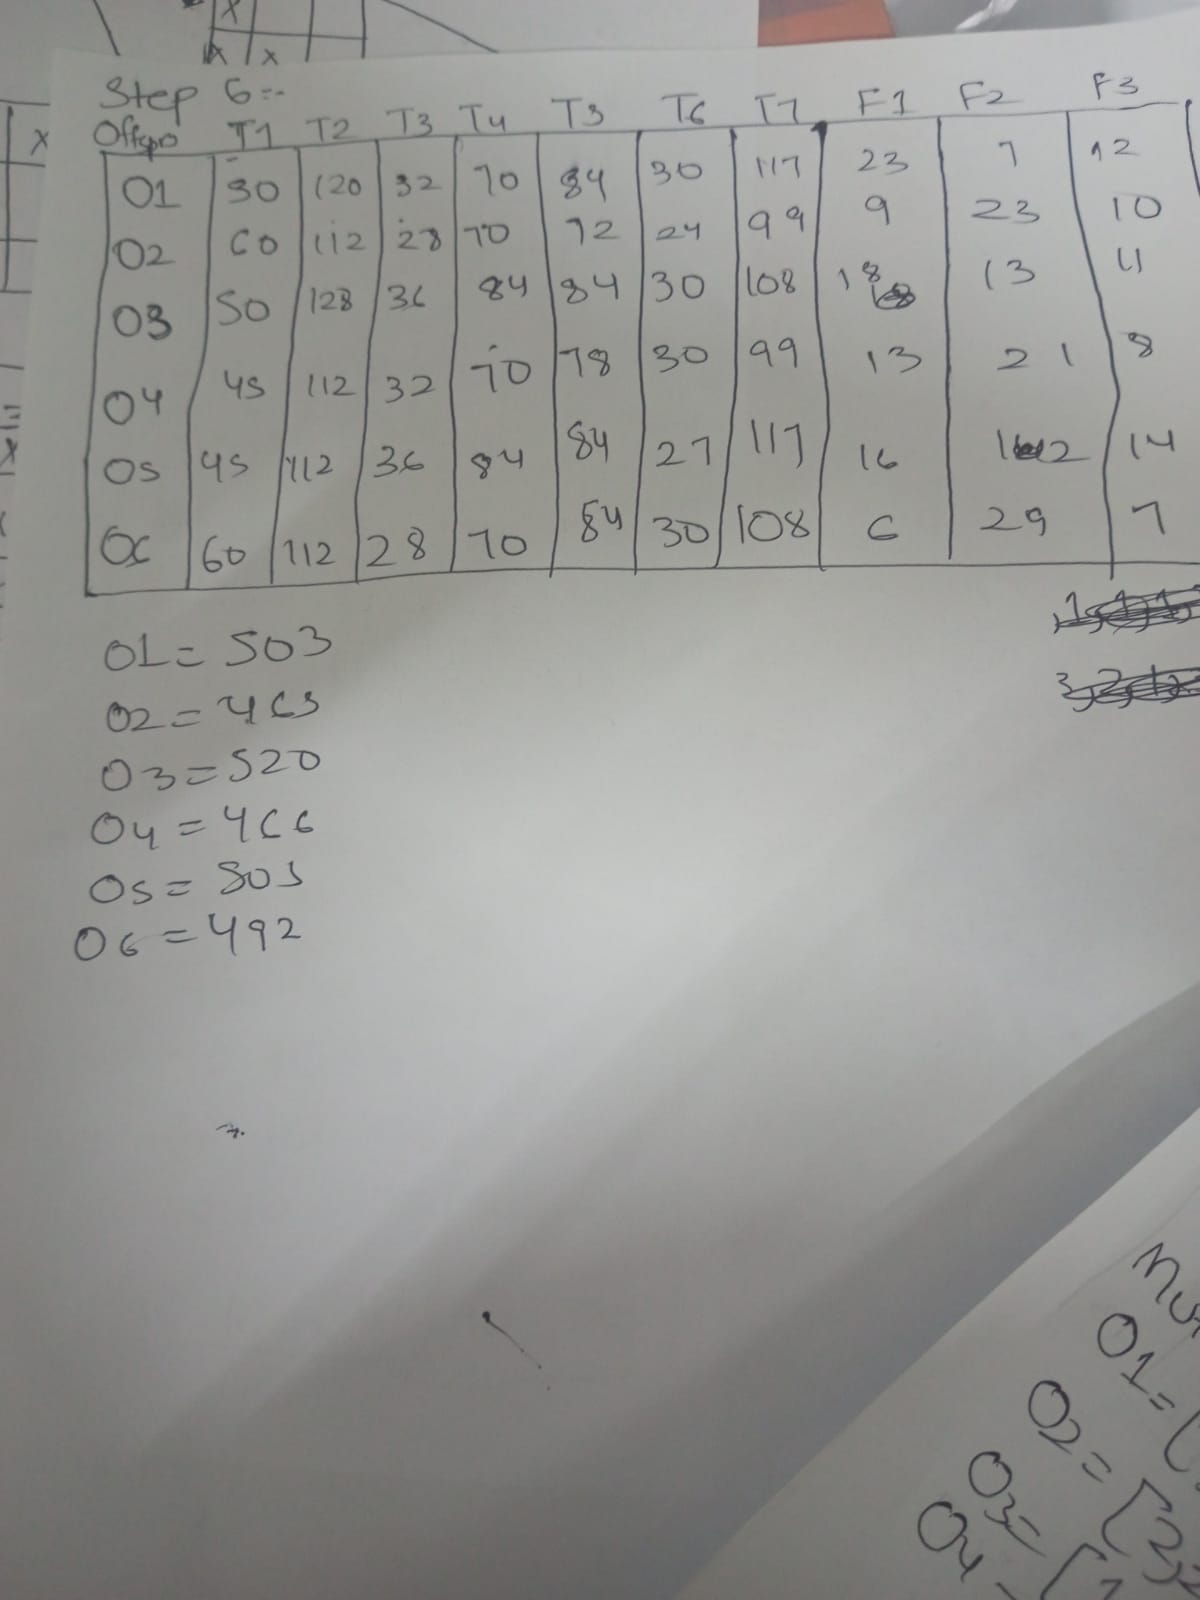 Step 6:-
Offspr T1 T2 T3 T4 T5 T6 T7 F1 F2 F3
O1 50 120 32 70 84 30 117 23 7 12
O2 60 112 28 70 72 24 99 9 23 10
O3 50 128 36 84 84 30 108 18 13 11
O4 45 112 32 70 78 30 99 13 21 8
O5 45 112 36 84 84 27 117 16 12 14
O6 60 112 28 70 84 30 108 6 29 7
O1 = 503
O2 = 465
O3 = 520
O4 = 466
O5 = 505
O6 = 492
O1 = [
O2 = [2,2
O3 = [
O4